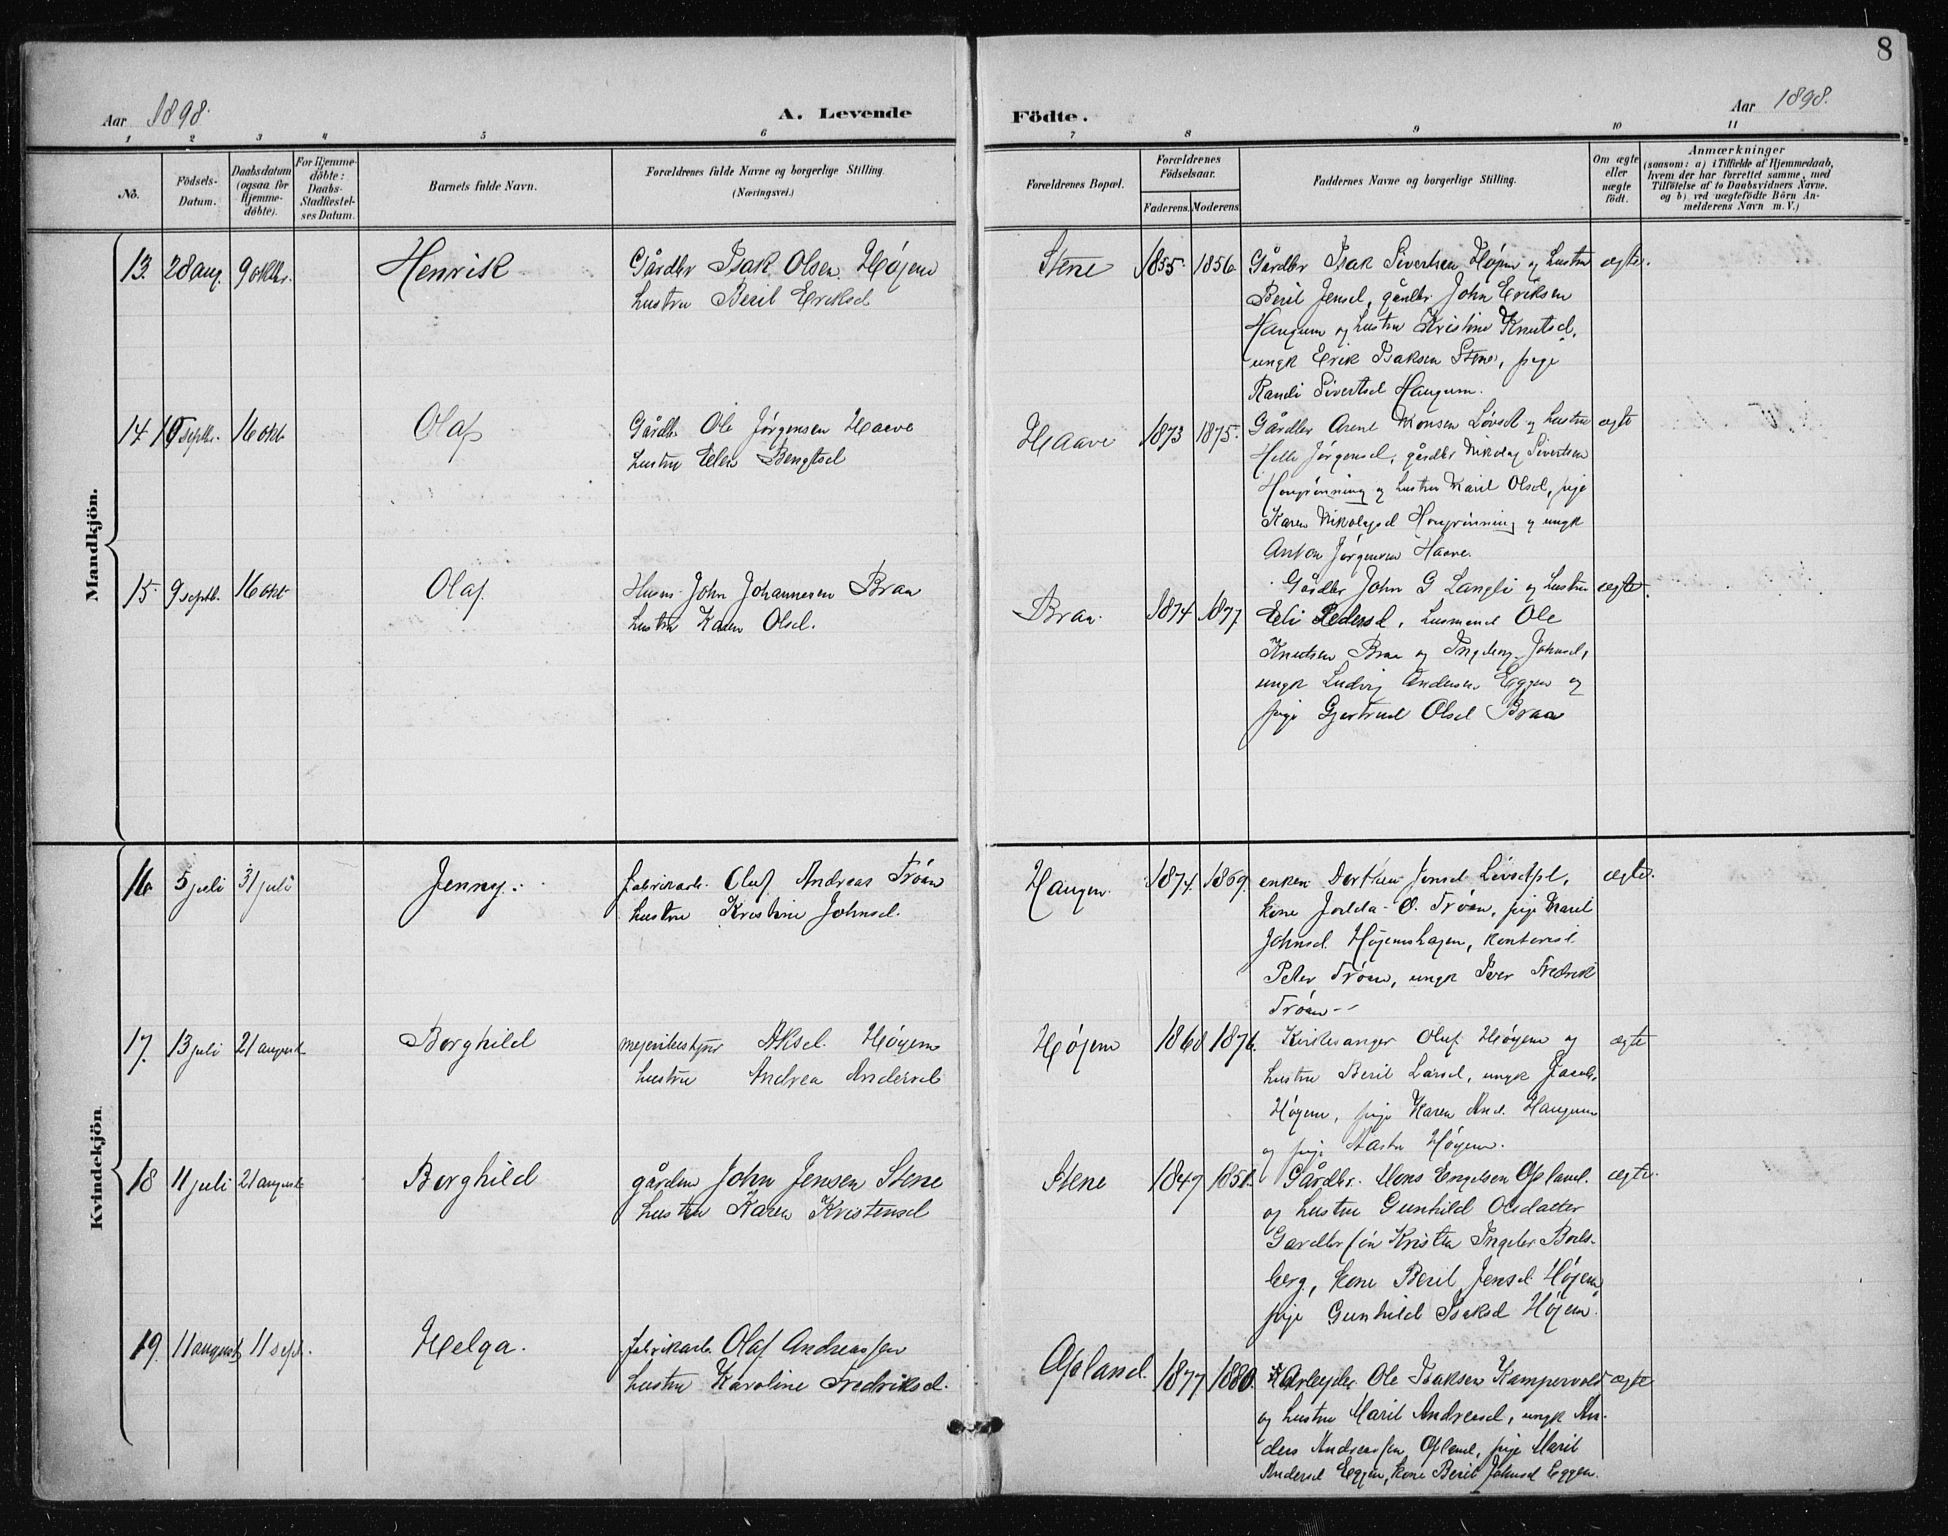 8
Aar 1898.
A. Levende
Födte.
Aar 1898.
1 2 3 4 5 6
7 8 9 10 11
No.
Födsels-
Datum.
Daabsdatum
(ogsaa for
Hjemme-
döbte).
For Hjemme-
döbte:
Daabs-
Stadfæstel-
ses Datum.
Barnets fulde Navn.
Forældrenes fulde Navne og borgerlige Stilling.
(Næringsvei.)
Forældrenes Bopæl.
Forældrenes
Födselsaar.
Faderens. Moderens.
Faddernes Navne og borgerlige Stilling.
Om ægte
eller
uægte
födt.
Anmærkninger
(saasom: a) i Tilfælde af Hjemmedaab,
hvem der har forrettet samme, med
Tilföielse af to Daabsvidners Navne.
og b) ved uægtefödte Börn An-
melderens Navn m. V.)
Mandkjön.
13. 28 aug. 9 oktbr. Henrik
Gårdbr Isak Olsen Højem
hustru Beril Eriksd
Stene 1855. 1856. ægte.
Gårdbr Isak Sivertsen Højem og hustru
Beril Jensd, gårdbr John Eriksen
Haugum og hustru Kristine Knutsd,
ungk Erik Isaksen Stene, pige
Randi Sivertsd Haugum.
14 septbr. 16 okt Olaf
Gårdbr Ole Jørgensen Haave
hustru Elen Bengtsd
Haave 1873 1875. ægte
Gårdbr Arent Monsen Løvset og hustru
Jørgensd, gårdbr Nikolaj Sivertsen
og hustru Maril Olsd, pige
Karen Nikolajsd og ungk
Anton Jørgensen Haave.
15. 9 septb. 16 okt Olaf
Husm John Johannesen Braa
hustru Karen Olsd.
Braa. 1874 1877. ægte.
Gårdbr John G Langli og hustru
Eli Pedersd, husmand Ole
Knutsen Braa og Ingeborg Johnsd,
ungk Ludvig Andersen Eggen og
pige Gjertrud Olsd Braa
Kvindekjön.
16 5 juli 31 juli Jenny.
fabrikarb. Oluf Andreas Trøen
hustru Kristine Johnsd.
Haugen. 1874. 1869. ægte.
enken Dorthea Jensd
kone O. Trøen, pige Maril
Johnsd Højemshagen, kontorist
Peter Trøen, ungk Iver Fredrik
Trøen
17. 13 juli 21 august Borghild
meieribestyrer Aksel Højem
hustru Andrea Andersd
Højem 1860 1876. ægte
Kirkesanger Oluf Højem og
hustru Beril Larsd, ungk Jacob
Højem, pige Karen And. Haugum
og pige Aasta Højem.
18 11 juli 21 august Borghild
gårdm John Jensen Stene
hustru Karen Kristensd
Stene 1847 1851. ægte.
Gårdbr. Mons Engelsen Øfland
og hustru Gunhild Olsdatter
Gardbr søn Kristen Ingebr. Bols-
berg, kone Beril Jensd. Højem
pige Gunhild Isaksd Højem.
19. 11 august 11 sept. Helga.
fabrikarb. Olaf Andreassen
hustru Karoline Fredriksd.
Øfland. 1877 1880. ægte
Arbeyder Ole Isaksen Kampervold
og hustru Maril Andreasd, ungk An-
ders Andreassen Øfland, pige Maril
Andersd Eggen, kone Beril Johnsd Eggen.